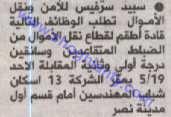 ● سبيد سرفيس للأمن ونقل
الأموال تطلب الوظائف التالية
قادة أطقم لقطاع نقل الأموال من
الضباط المتقاعدين وسائقين
درجة أولى وثانية المقابلة الاحد
5/19 بمقر الشركة 13 اسكان
شباب المهندسين أمام قسم أول
مدينة نصر